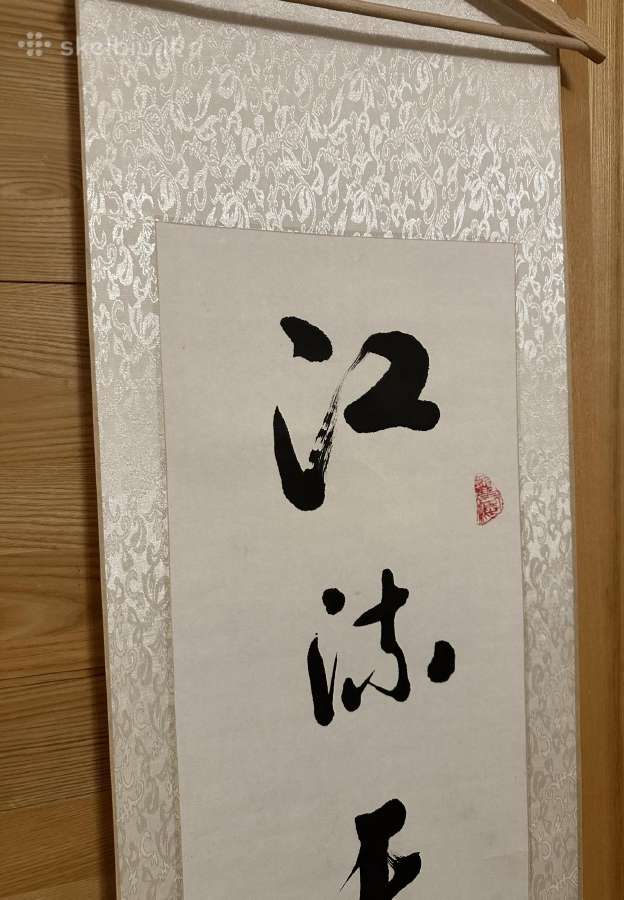 skelbiu.lt
江
流
天